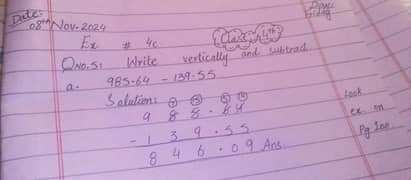 Date: Day:
08th Nov. 2024 Friday
Ex # 4c Class 4th
QNO.5: Write vertically and subtract.
a. 985.64 - 139.55
Solution:
9 8 5 . 6 4
- 1 3 9 . 5 5
8 4 6 . 0 9 Ans
Look
ex on
Pg 100